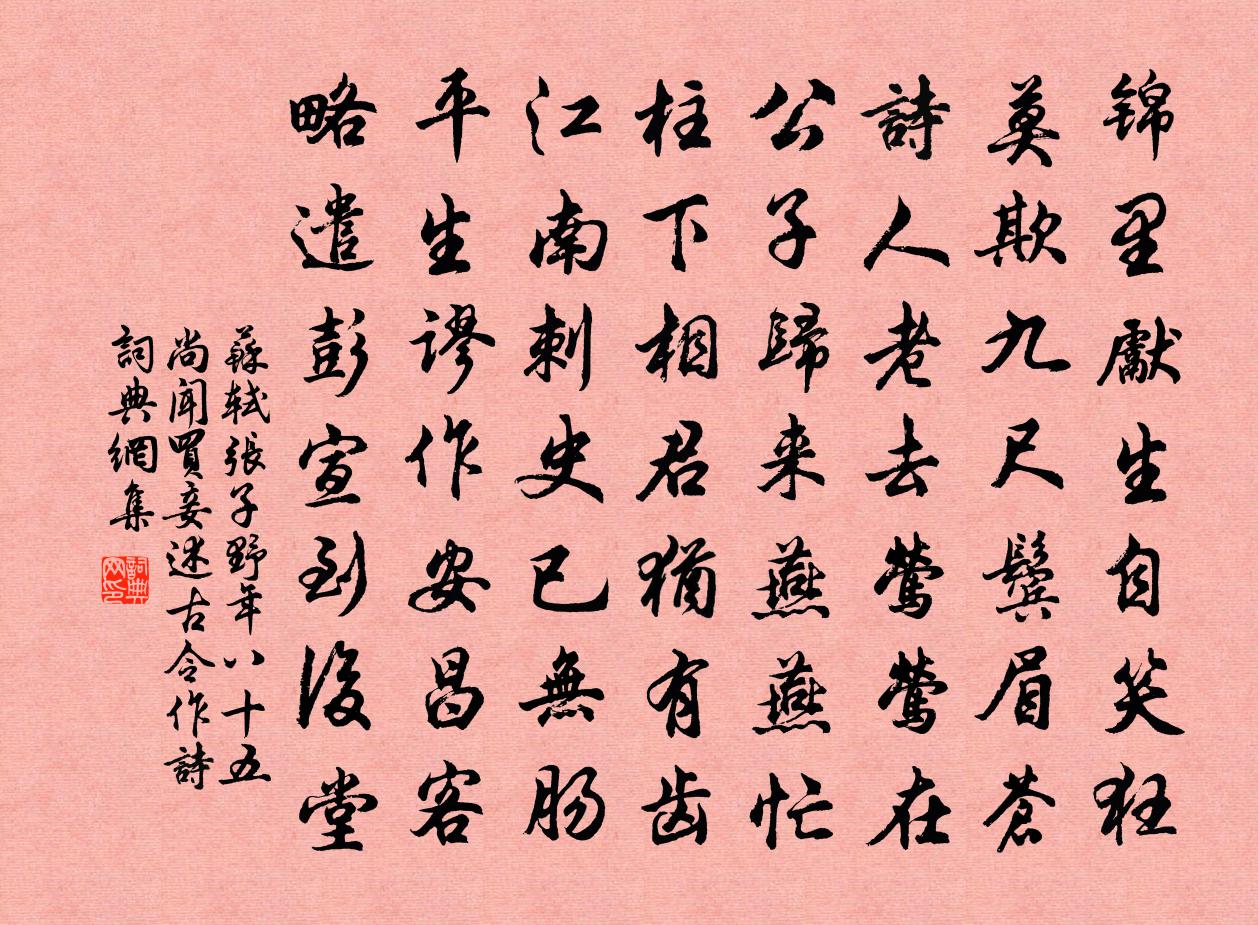 锦里獻生自笑狂
莫欺九尺鬓眉蒼
詩人老去鶯鶯在
公子歸来燕燕忙
柱下相君猶有齿
江南刺史已無肠
平生谬作安昌客
略遣彭宣到後堂
蘇軾張子野年八十五
尚闻買妾述古令作詩
詞典網集
詞典网印